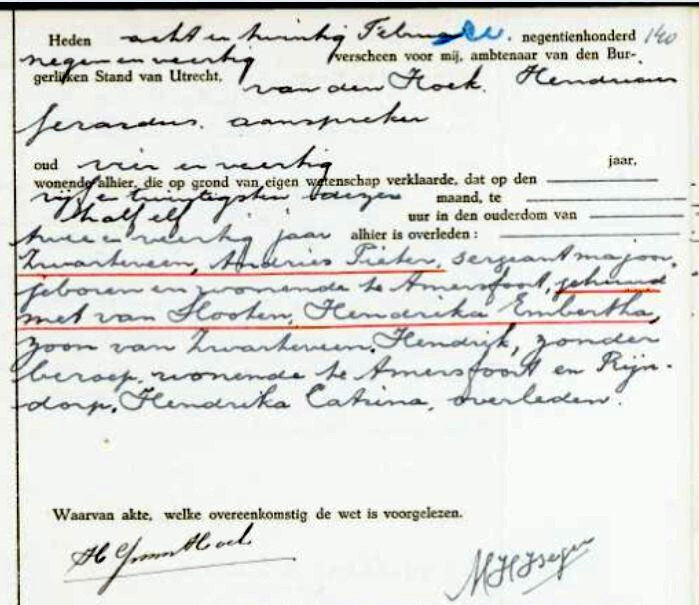 Heden acht en twintig Februari, negentienhonderd 140
negen en veertig verscheen voor mij, ambtenaar van den Bur-
gerlijken Stand van Utrecht, van den Hoek, Hendricus
Gerardus, aanspreker
oud vier en veertig jaar,
wonende alhier, die op grond van eigen wetenschap verklaarde, dat op den
vijf en twintigsten dezer maand, te
half elf uur in den ouderdom van
twee en veertig jaar alhier is overleden:
Zwarteveen, Andries Pieter, sergeant majoor,
geboren en wonende te Amersfoort, gehuwd
met van Slooten, Hendrika Embertha,
zoon van Zwarteveen, Hendrik, zonder
beroep, wonende te Amersfoort en Rijn-
dorp, Hendrika Catrina, overleden.
Waarvan akte, welke overeenkomstig de wet is voorgelezen.